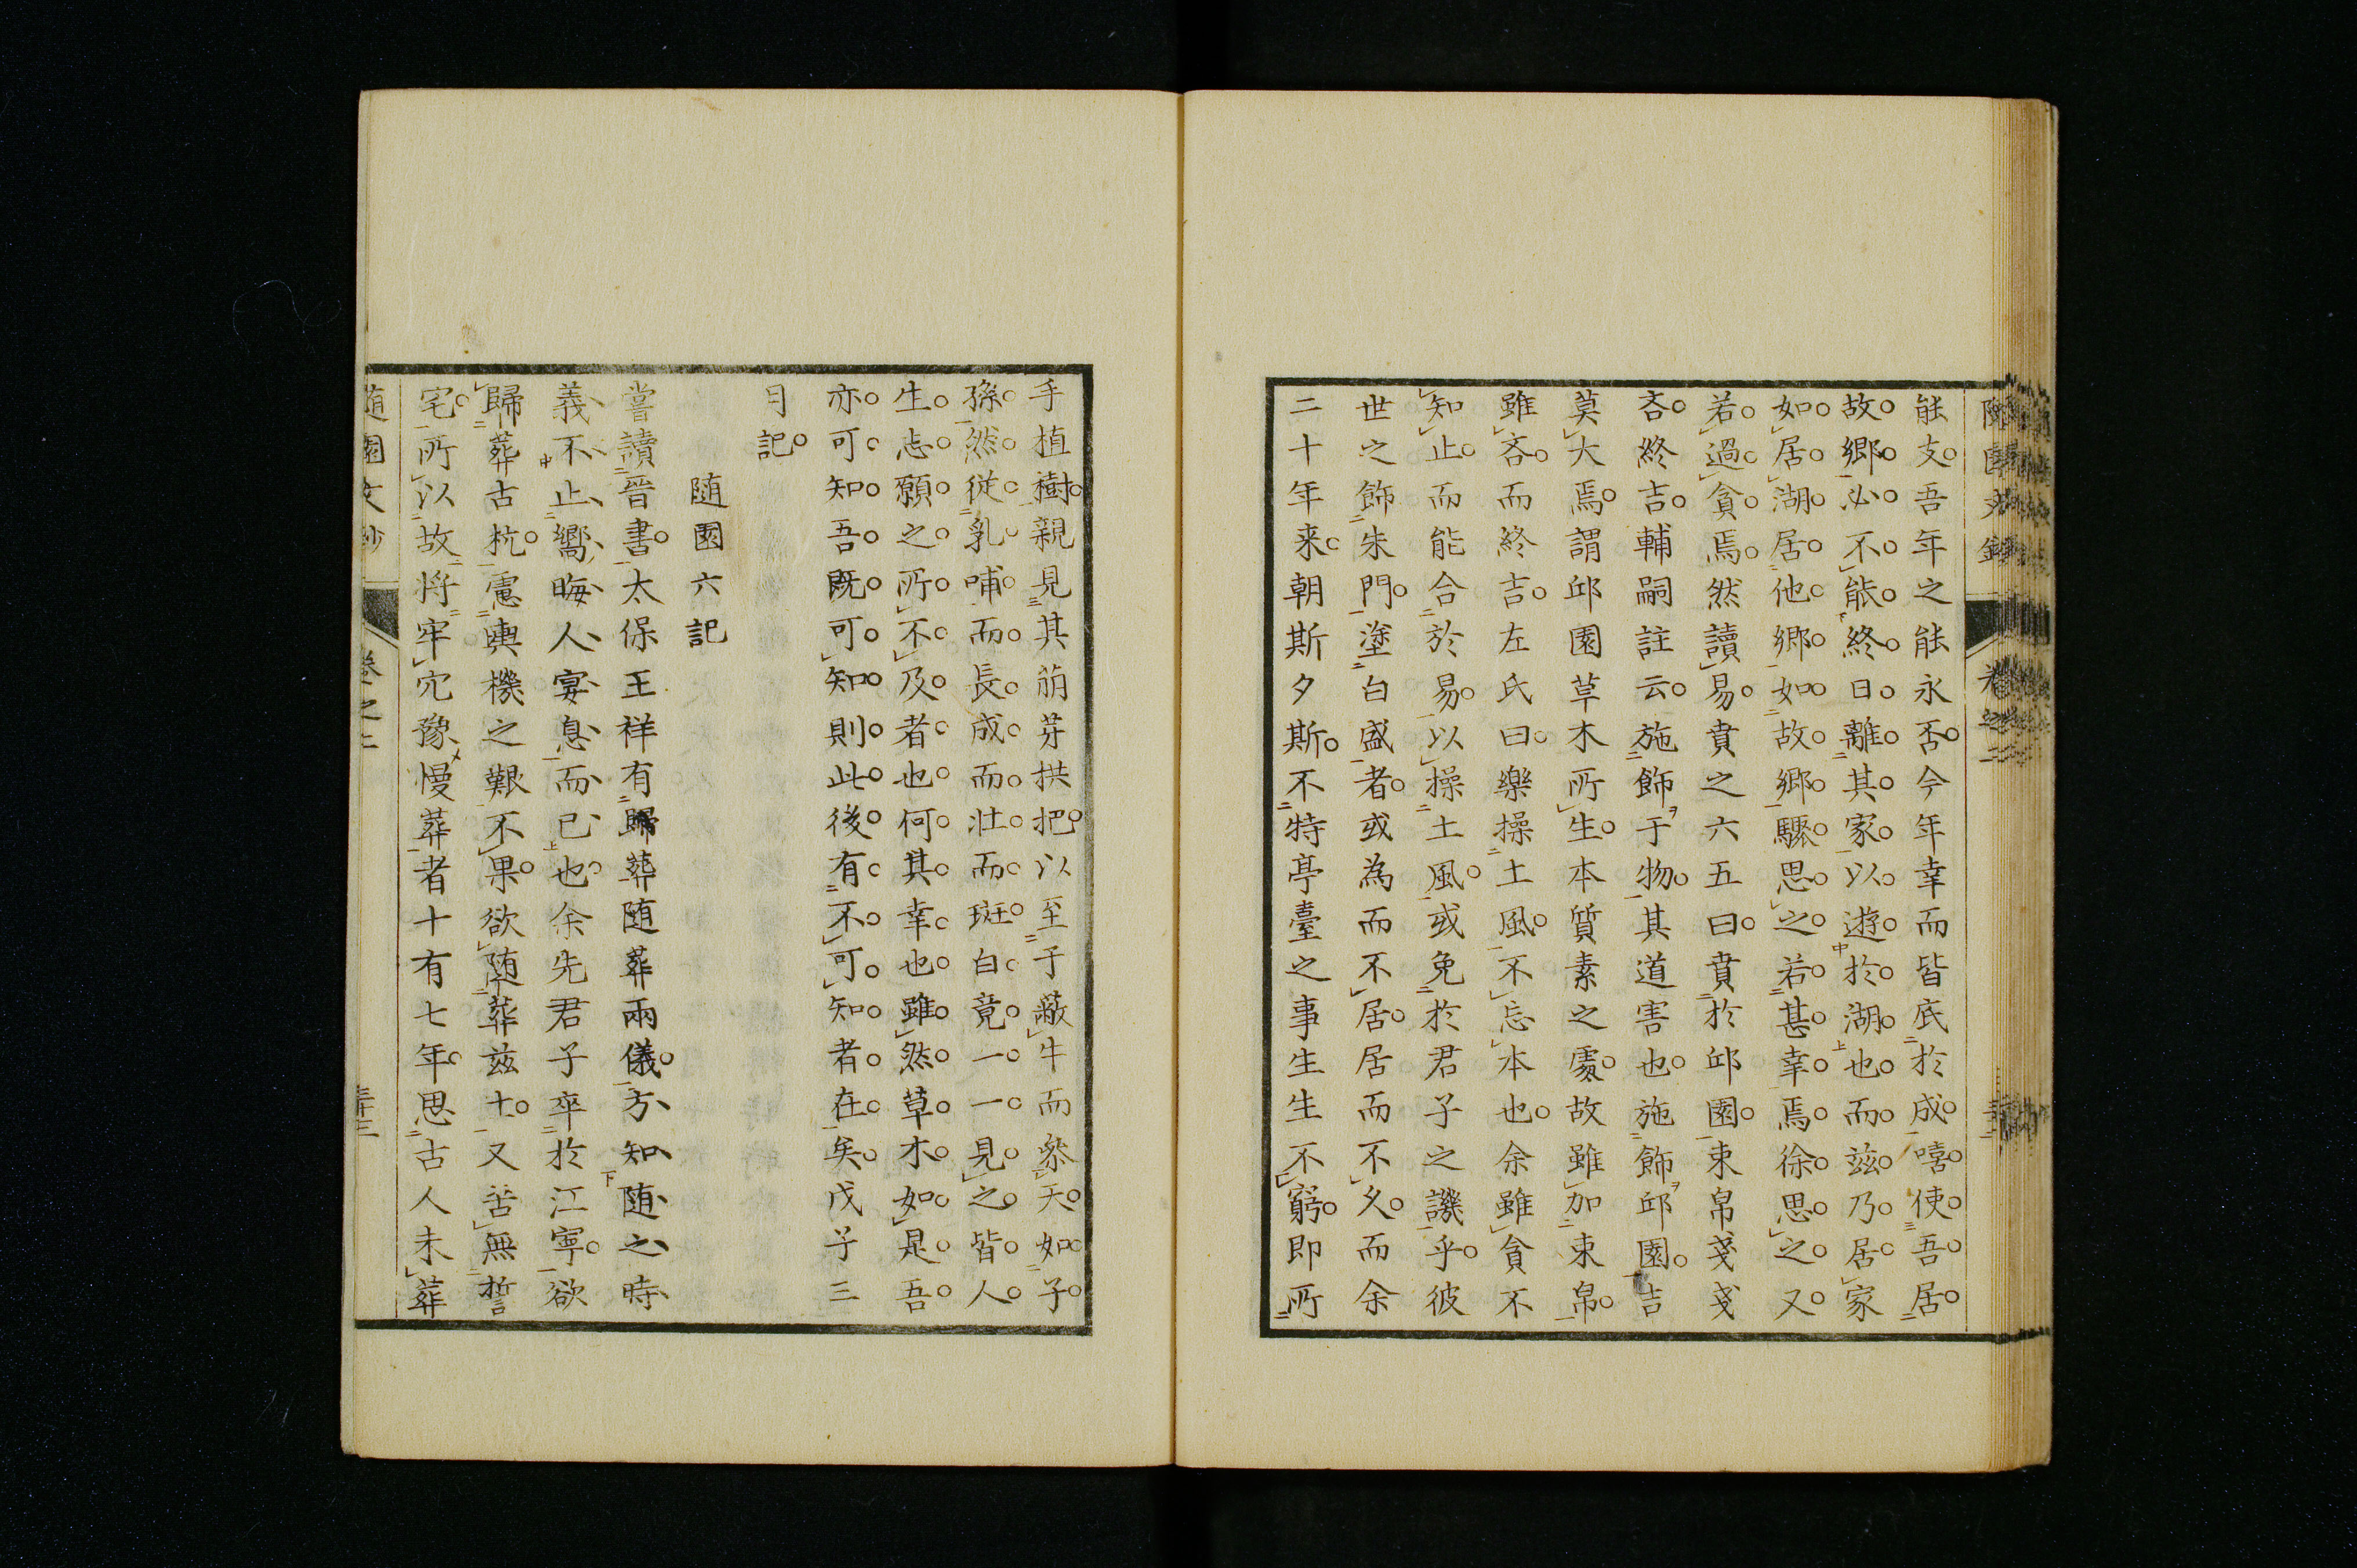 能支吾年之能永否今年幸而皆底於成嘻使吾居
故鄉必不能終日離其家以遊於湖也而茲乃居家
如居湖居他鄉如故鄉驟思之若甚幸焉徐思之又
若過貪焉然讀易賁之六五曰賁於邱園束帛戔戔
吝終吉輔嗣註云施飾于物其道害也施飾邱園吉
莫大焉謂邱園草木所生本質素之處故雖加束帛
雖吝而終吉左氏曰樂操土風不忘本也余雖貪不
知止而能合於易以操土風或免於君子之譏乎彼
世之飾朱門塗白盛者或為而不居居而不久而余
二十年来朝斯夕斯不特亭臺之事生生不窮即所
手植樹親見其萠芽拱把以至于蔽牛而参天如子
孫然從乳哺而長成而壯而斑白竟一一見之皆人
生志願之所不及者也何其幸也雖然草木如是吾
亦可知吾既可知則此後有不可知者在矣戊子三
月記
随園六記
嘗讀晉書太保王祥有歸葬随葬兩儀方知随之時
義不止嚮晦人宴息而已也余先君子卒於江寧欲
歸葬古杭慮輿機之艱不果欲随葬茲土又苦無誓
宅所以故将牢宂豫慢葬者十有七年思古人未葬
随園文鈔
卷之二
三十三